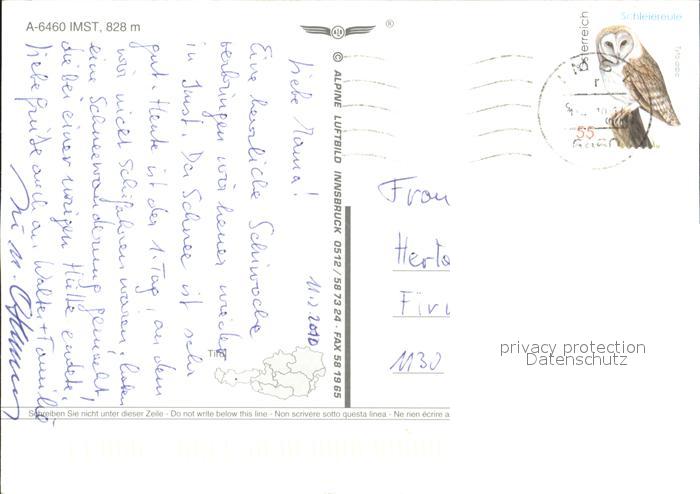 A-6460 IMST, 828 m
®
© ALPINE LUFTBILD INNSBRUCK 0512/587324 · FAX 581965
Schleiereule
Österreich
Tyto alba
55
11.2.2010
Liebe Mama!
Eine herzliche Schiwoche
verbringen wir heuer wieder
in Imst. Der Schnee ist sehr
gut. Heute ist der 1. Tag, an dem
wir nicht Schifahren waren, haben
eine Schneewanderung gemacht,
die bei einer urigen Hütte endete.
Liebe Grüße auch an Walter + Familie
Tirol
Frau
Herta
1130
privacy protection
Datenschutz
Schreiben Sie nicht unter dieser Zeile - Do not write below this line - Non scrivere sotto questa linea - Ne rien écrire a